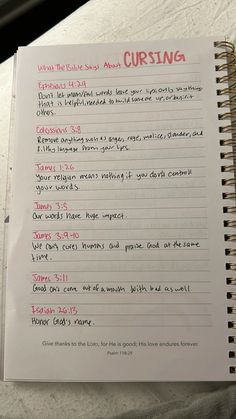 What The Bible Says About CURSING
Ephesians 4:29
Don't let harmful words leave your lips, only anything
that is helpful, needed to build someone up, or benefit
others.
Colossians 3:8
Remove anything such as anger, rage, malice, slander, and
filthy language from your lips.
James 1:26
Your religion means nothing if you don't control
your words.
James 3:5
Our words have huge impact.
James 3:9-10
We can't curse humans and praise God at the same
time.
James 3:11
Good can't come out of a mouth with bad as well.
Isaiah 26:13
Honor God's name.
Give thanks to the LORD, for He is good; His love endures forever.
Psalm 118:29